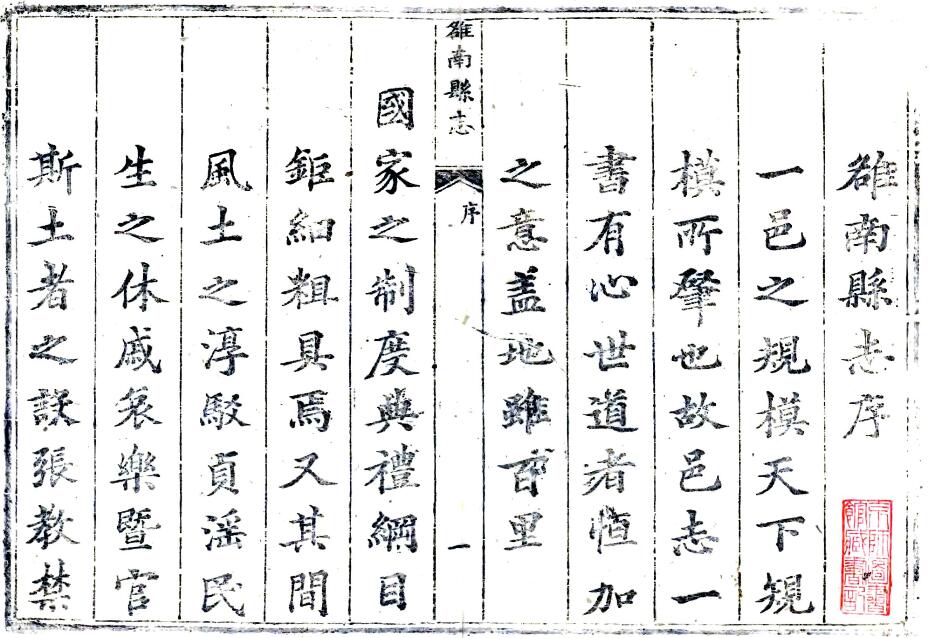 雒南縣志序
一邑之規模天下規
模所肇也故邑志一
書有心世道者恒加
之意盖地雖百里
雒南縣志
序
一
國家之制度典禮綱目
鉅細粗具焉又其間
風土之淳駁貞滛民
生之休戚哀樂暨官
斯土者之張教禁